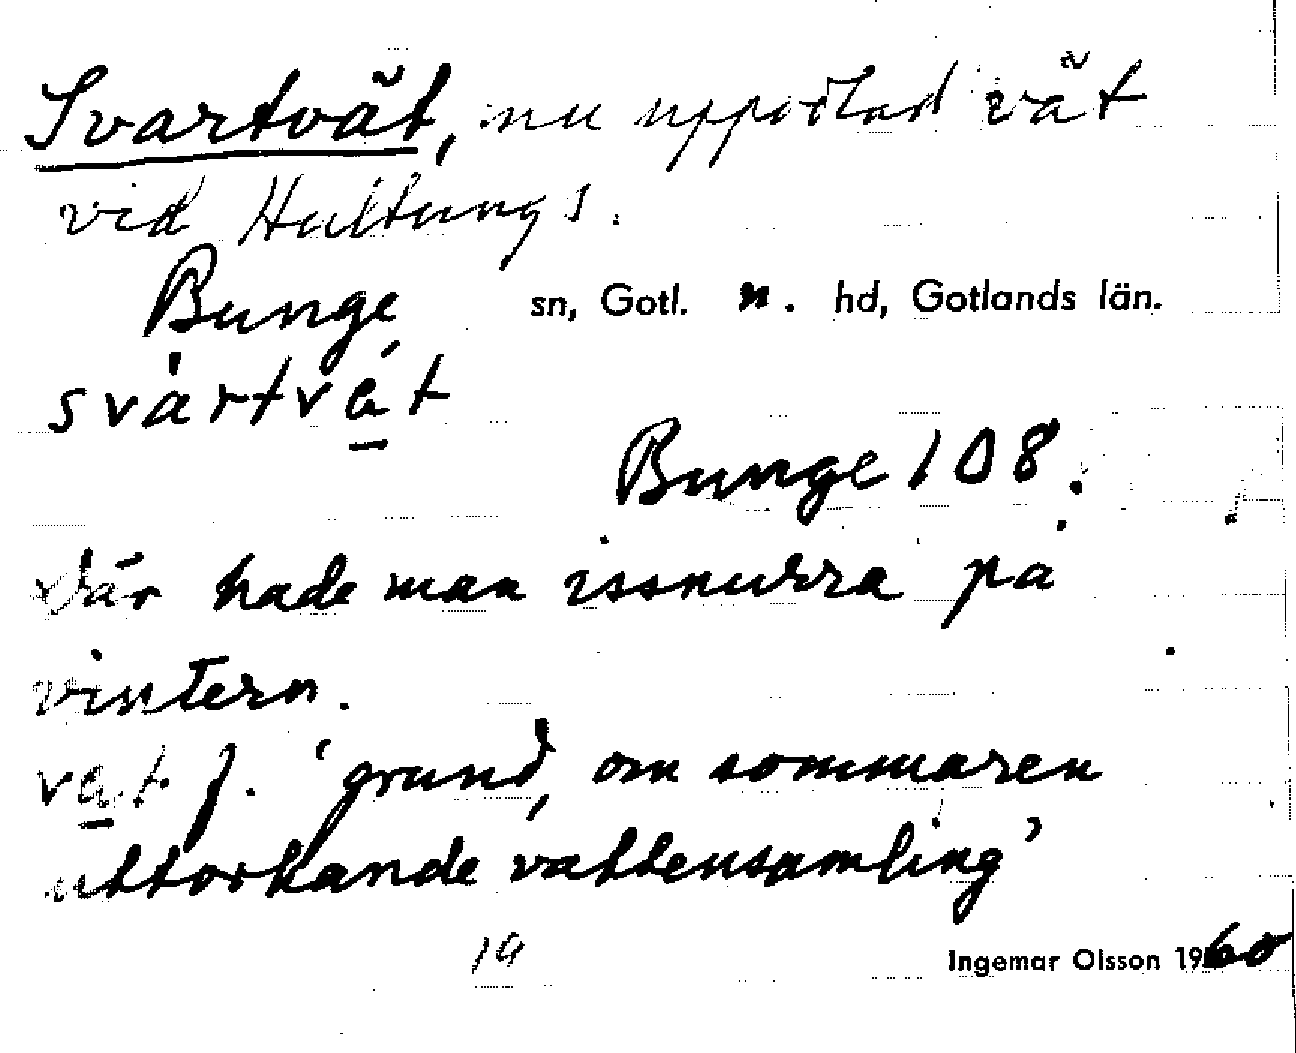 Svartvät, nu uppodlad vät
vid Hultungs.
Bunge sn, Gotl. n. hd, Gotlands län.
svartvät
Bunge 108.
Där hade man issnurra på
vintern.
vät f. 'grund, om sommaren
uttorkande vattensamling'
19
Ingemar Olsson 1960